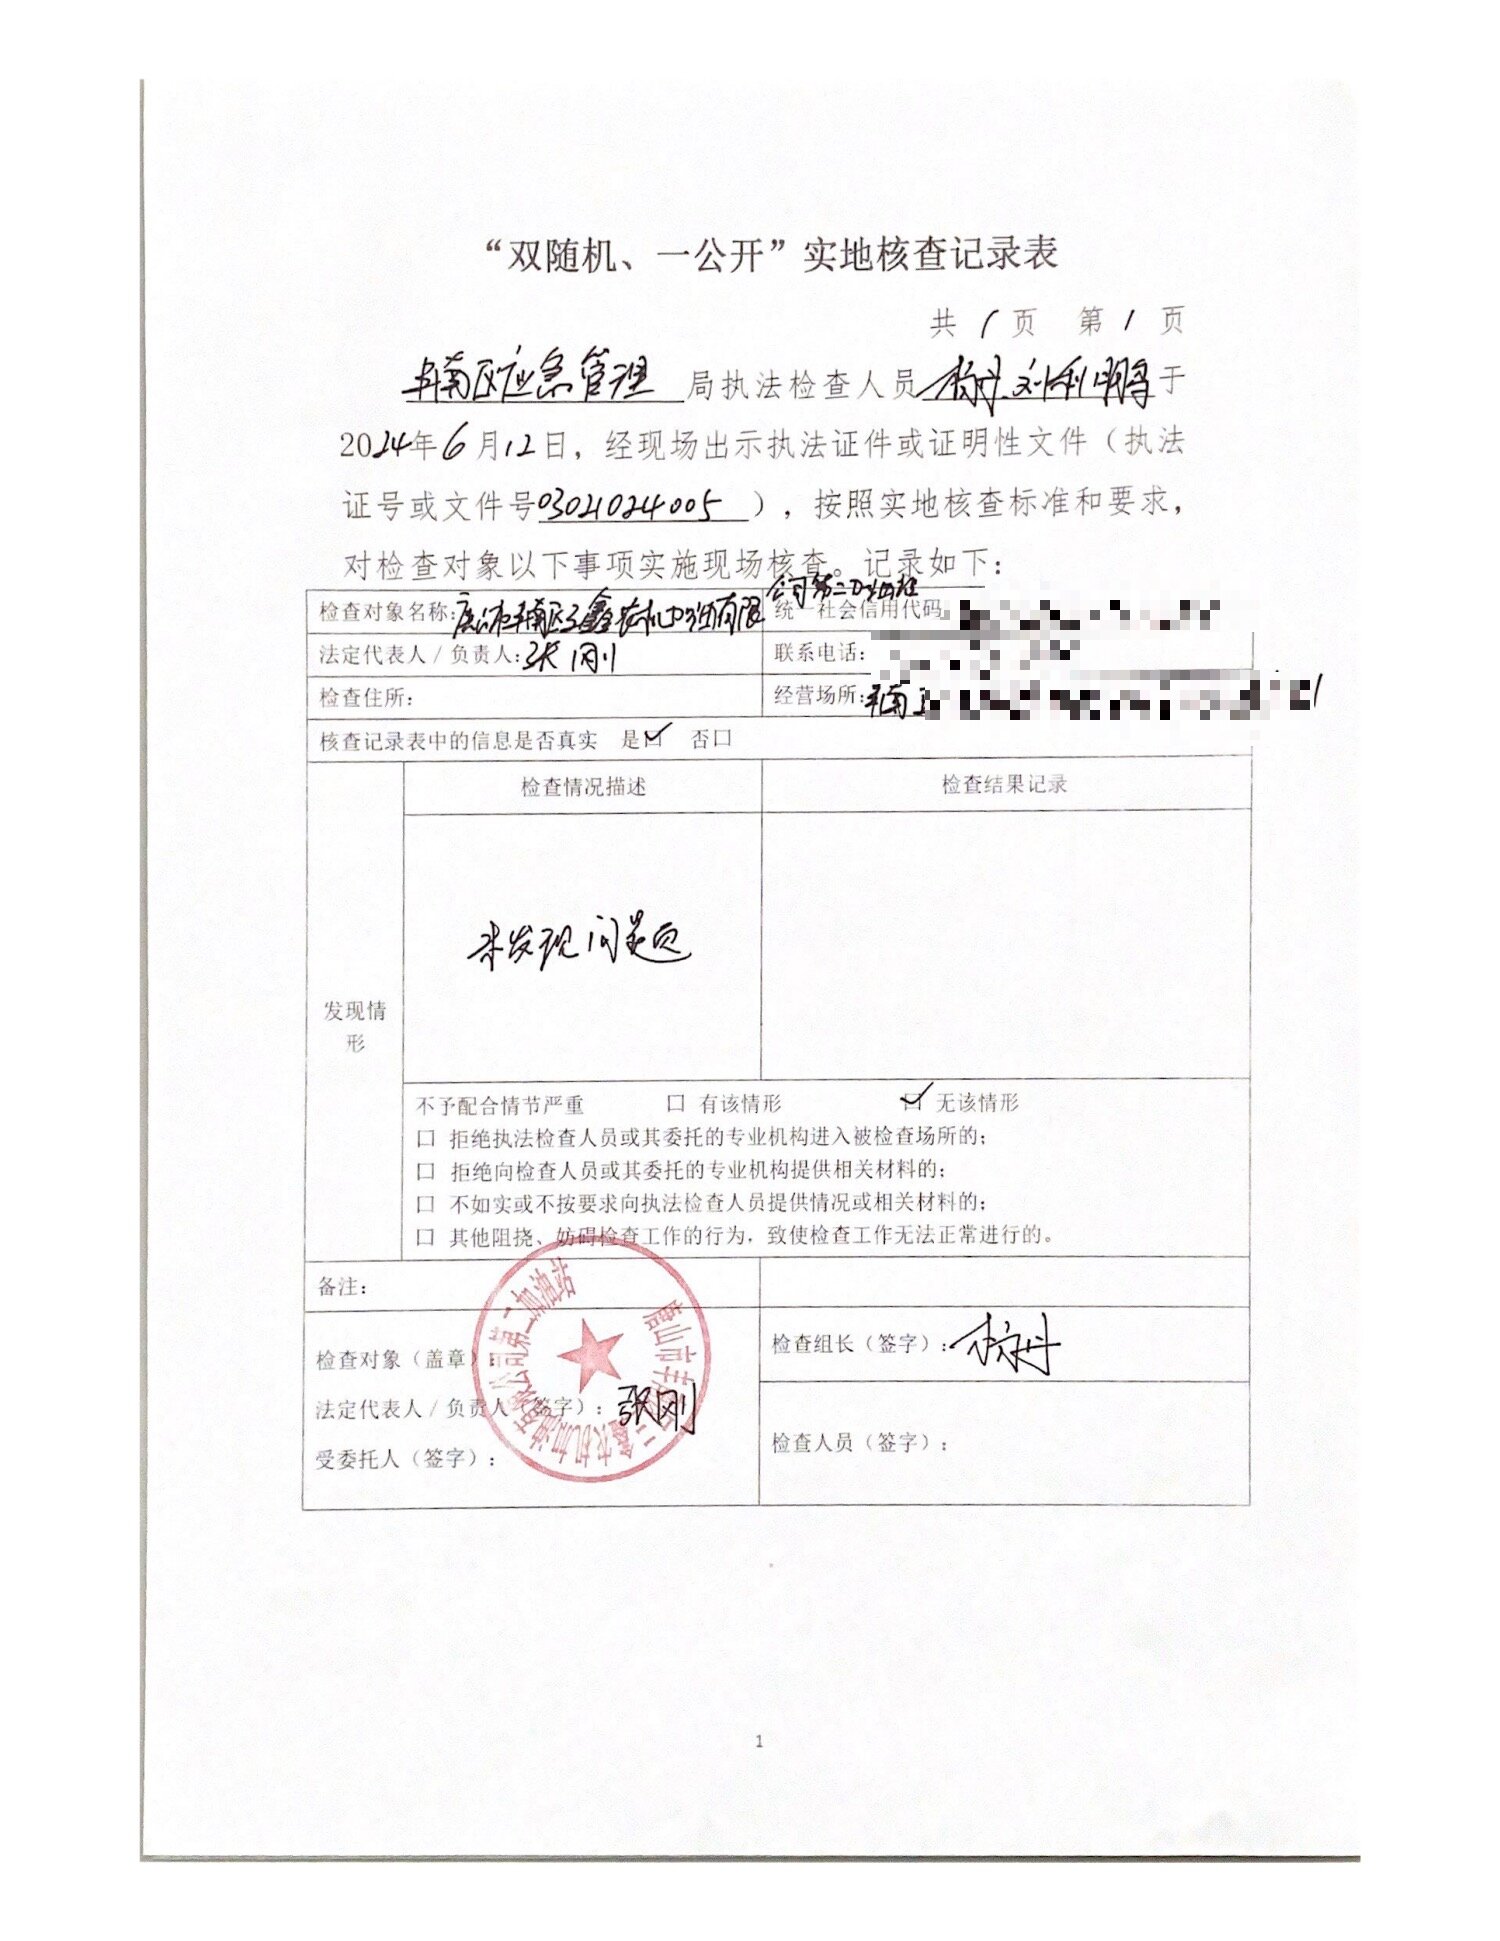 “双随机、一公开”实地核查记录表
共 1 页 第 1 页
丰南区应急管理 局执法检查人员 杨丹、刘利鹏 于
2024年6月12日，经现场出示执法证件或证明性文件（执法
证号或文件号03021024005），按照实地核查标准和要求，
对检查对象以下事项实施现场核查。记录如下：
检查对象名称：唐山市丰南区三鑫农机加油有限公司第二加油站 统一社会信用代码
法定代表人/负责人：张刚 联系电话：
检查住所： 经营场所：丰南
核查记录表中的信息是否真实 是☑ 否□
检查情况描述 检查结果记录
发现情形
未发现问题
不予配合情节严重 □ 有该情形 ☑ 无该情形
□ 拒绝执法检查人员或其委托的专业机构进入被检查场所的；
□ 拒绝向检查人员或其委托的专业机构提供相关材料的；
□ 不如实或不按要求向执法检查人员提供情况或相关材料的；
□ 其他阻挠、妨碍检查工作的行为，致使检查工作无法正常进行的。
备注：
检查对象（盖章）：
唐山市丰南区三鑫农机加油有限公司第二加油站
法定代表人/负责人（签字）：张刚
受委托人（签字）：
检查组长（签字）：杨丹
检查人员（签字）：
1